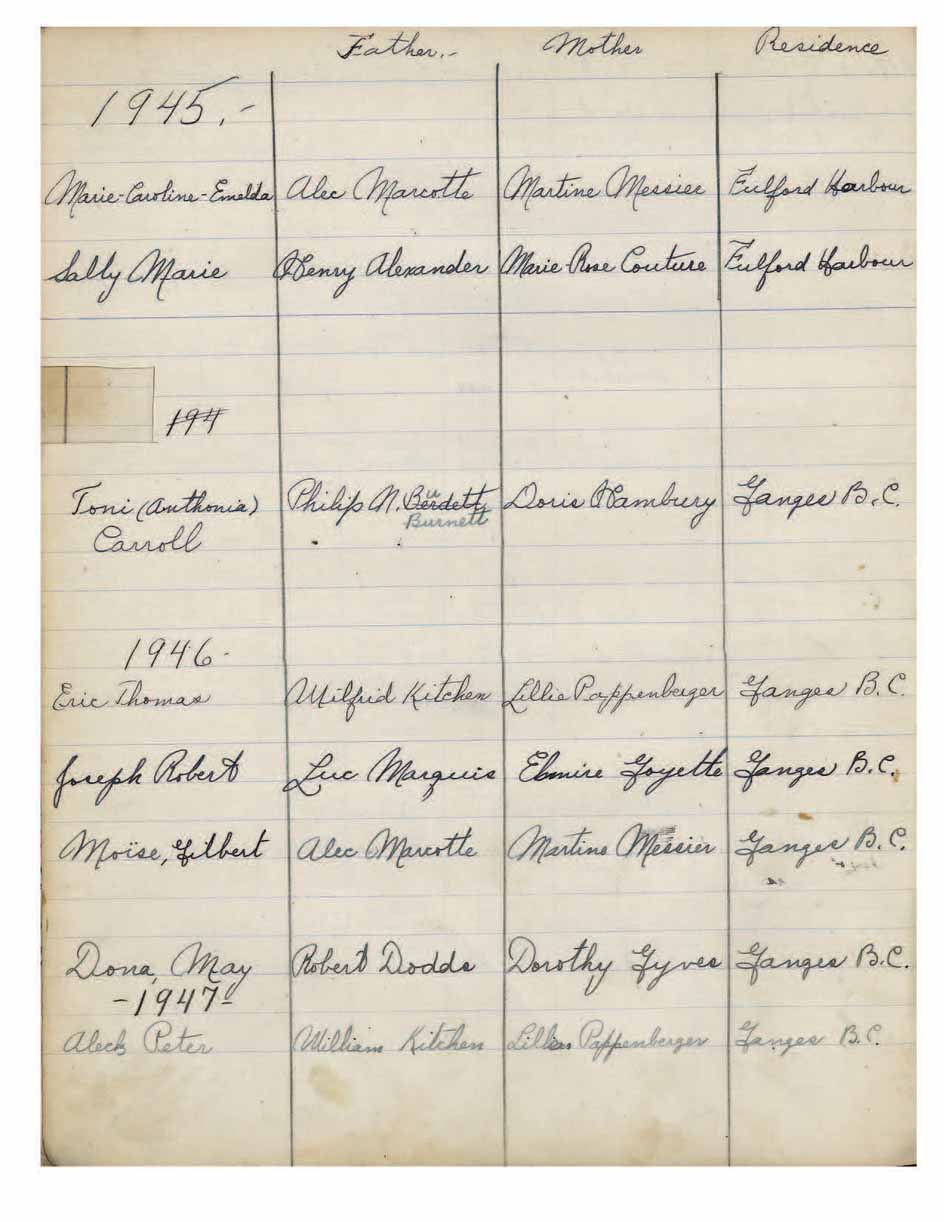 Father.- Mother Residence
1945.-
Marie-Caroline-Emelda Alec Marcotte Martine Messier Fulford Harbour
Sally Marie Henry Alexander Marie Rose Couture Fulford Harbour
194
Toni (Anthonia) Philip N. Burdett Doris Hambury Ganges B.C.
Carroll Burnett
1946-
Eric Thomas Wilfrid Kitchen Lillie Pappenberger Ganges B.C.
Joseph Robert Luc Marquis Elmire Goyette Ganges B.C.
Moïse, Gilbert Alec Marcotte Martine Messier Ganges B.C.
Dona, May Robert Dodds Dorothy Gyves Ganges B.C.
-1947-
Aleck Peter William Kitchen Lillian Pappenberger Ganges B.C.